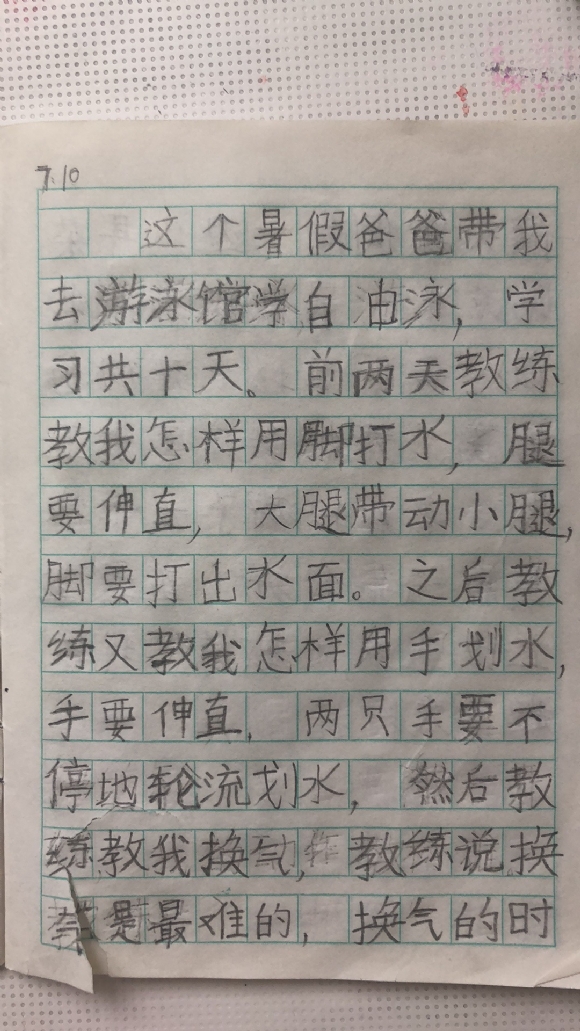 7.10
这个暑假爸爸带我
去游泳馆学自由泳，学
习共十天。前两天教练
教我怎样用脚打水，腿
要伸直，大腿带动小腿，
脚要打出水面。之后教
练又教我怎样用手划水，
手要伸直，两只手要不
停地轮流划水，然后教
练教我换气，教练说换
气是最难的，换气的时